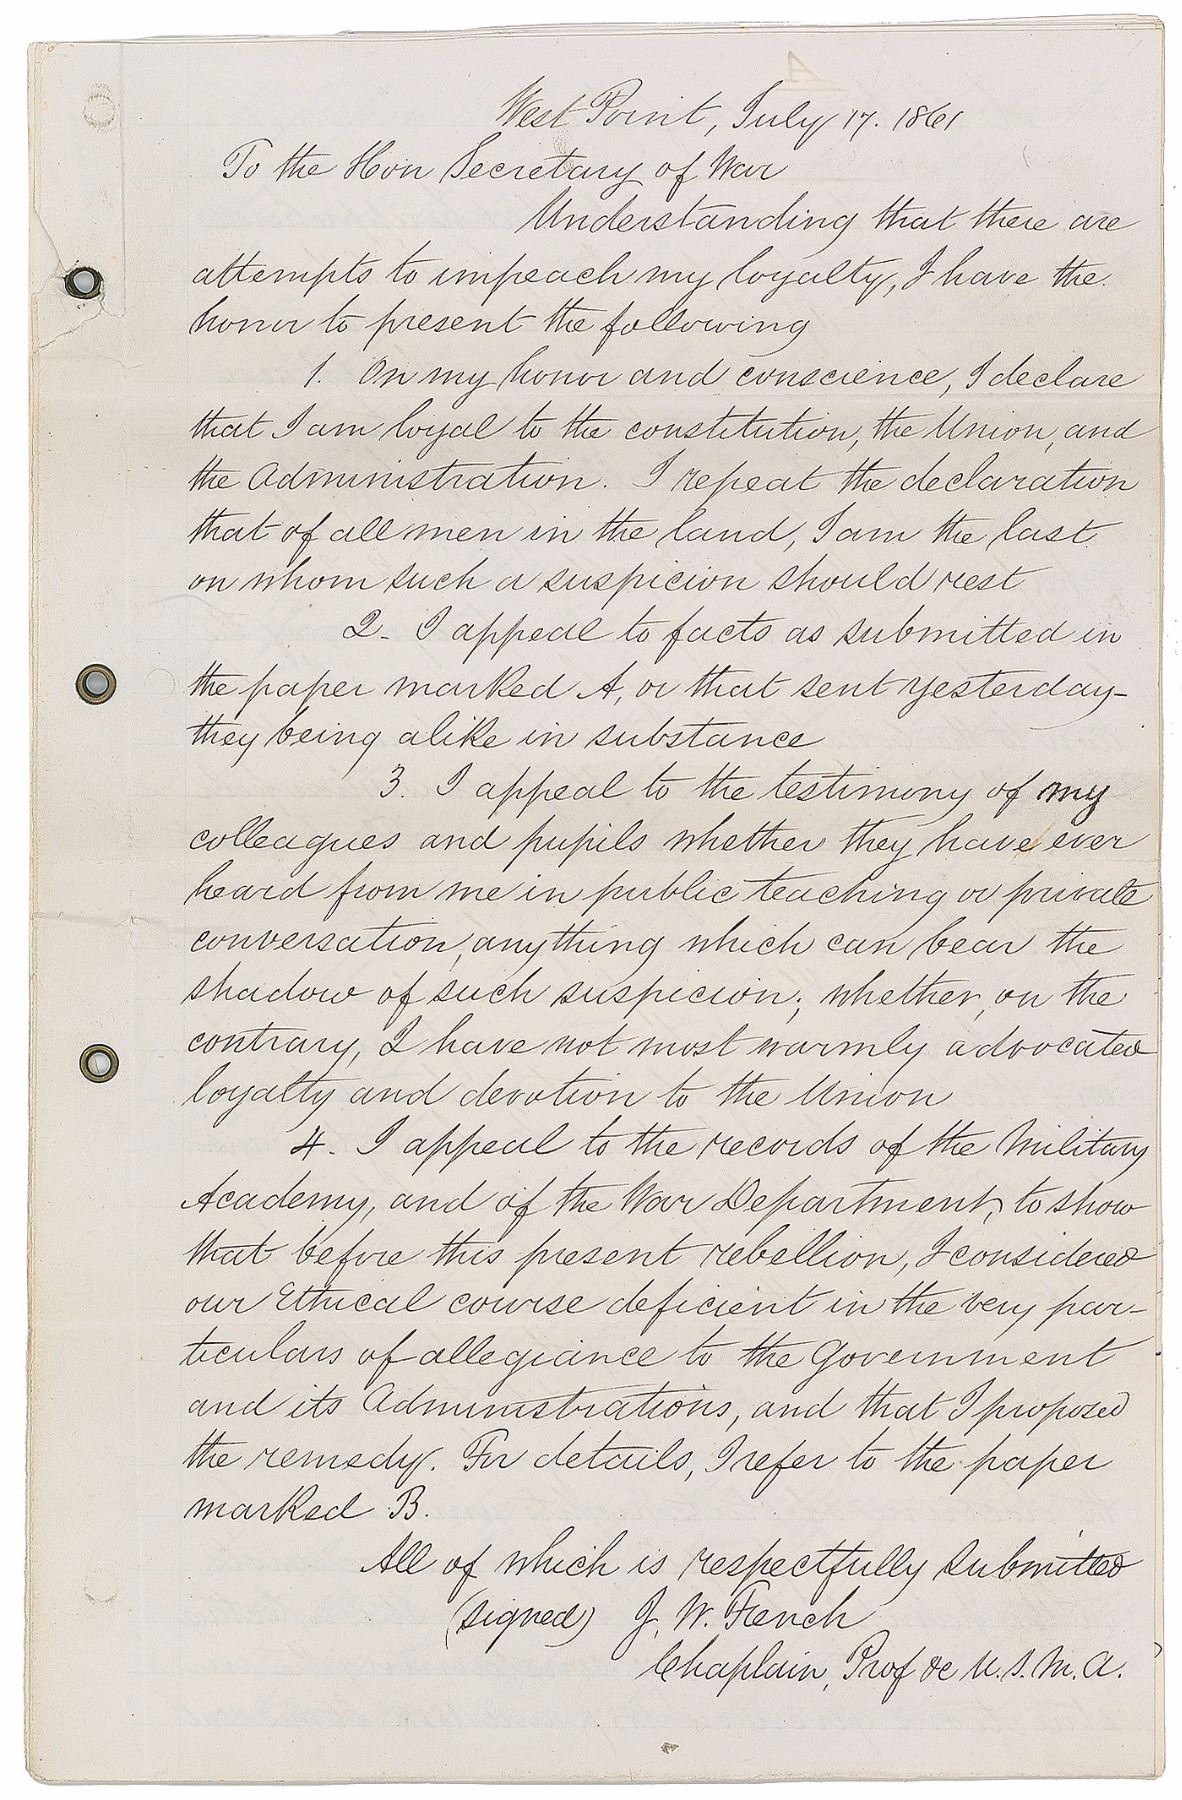 West Point, July 17. 1861
To the Hon Secretary of War
Understanding that there are
attempts to impeach my loyalty, I have the
honor to present the following
1. On my honor and conscience, I declare
that I am loyal to the constitution, the Union, and
the Administration. I repeat the declaration
that of all men in the land, I am the last
on whom such a suspicion should rest
2. I appeal to facts as submitted in
the paper marked A, or that sent yesterday-
they being alike in substance
3. I appeal to the testimony of my
colleagues and pupils whether they have ever
heard from me in public teaching or private
conversation, anything which can bear the
shadow of such suspicion; whether, on the
contrary, I have not most warmly advocated
loyalty and devotion to the Union
4. I appeal to the records of the Military
Academy, and of the War Department, to show
that before this present rebellion, I considered
our Ethical course deficient in the very par-
ticulars of allegiance to the Government
and its Administrations, and that I proposed
the remedy. For details, I refer to the paper
marked B.
All of which is respectfully submitted
(signed) J. W. French
Chaplain, Prof &c U.S.M.A.